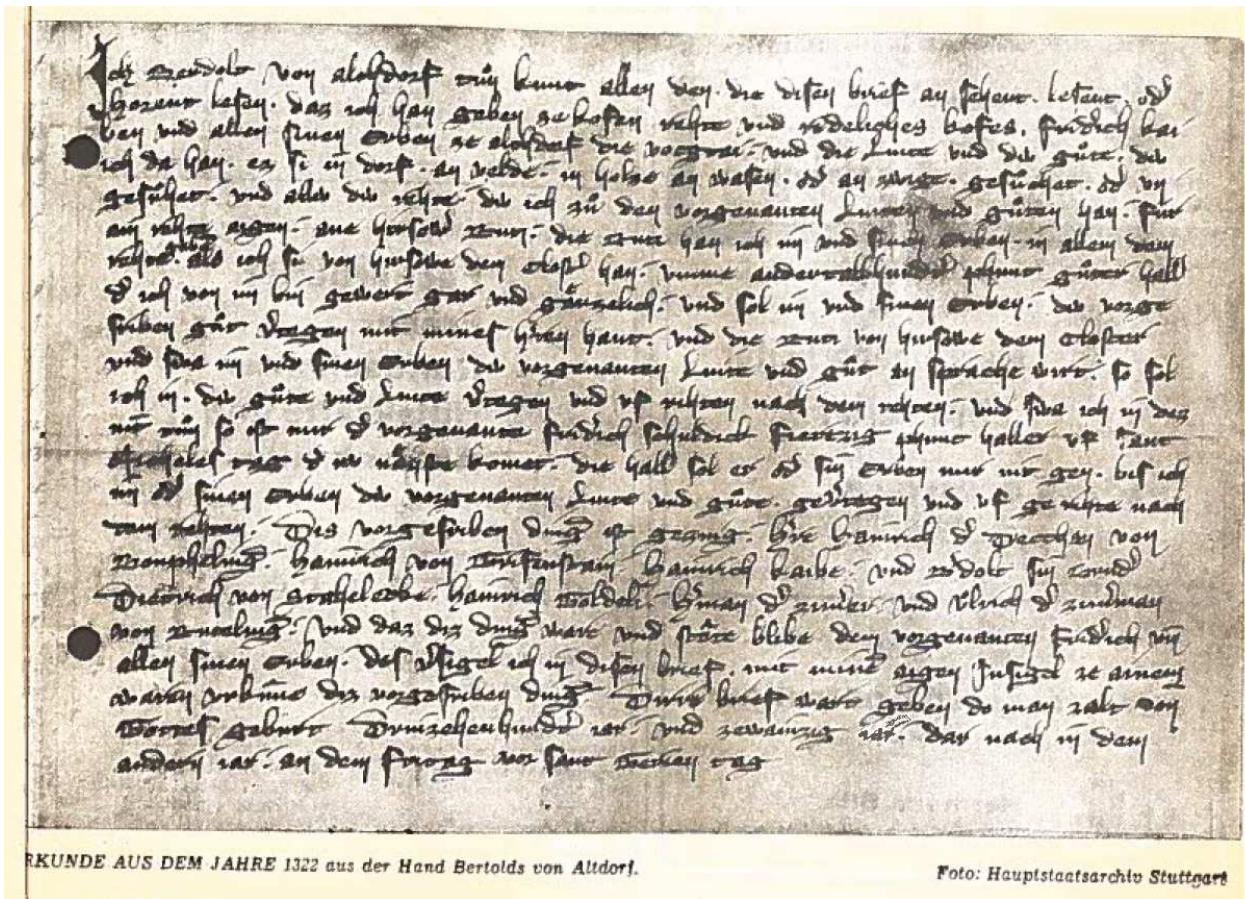 Ich Berdolt von alchdorf tůn kunt allen den. die disen brief an sehent. lesent. od᷎
horent lesen. daz ich han geben ze kofen rehte vnd redeliches kofes. frid᷎ich kai
ben vnd allen sinen Erben ze alchdorf die vogtai. vnd die Luite vnd dv̍ gůte. dv̍
ich da han. ez si in dorf. an velde. in holze an wasen. od᷎ an zwige. gesůchet. od᷎ vn
gesůhet. vnd allv̍ dv̍ rehte. dv̍ ich zů den vorgenanten Luiten vnd gůten han. für
ain rehte aigen. ane hirsowe die han ich im vnd sinen Erben. in allem dem
rehte. als ich si von hirsowe dem Closter han. vmme anderthalbhundert phunt gůter hall᷎
d᷎ ich von im bin gewert gar vnd gänzelich. vnd sol im vnd sinen Erben. dv̍ vorge
sriben gůt v᷎tegen mit mines h᷎ren hant. vnd die von hirsowe dem Closter
vnd swa im vnd sinen Erben dv̍ vorgenanten Luite vnd gůt an sprache wirt. so sol
ich in. dv̍ gůte vnd Luite v᷎tegen vnd vf rihten nach dem rehten. vnd swa ich in daz
nit tůn so ist mir d᷎ vorgenante frid᷎ich schuldick fierzig phunt haller vf sant
Micheles tag d᷎ nv nähste komet. die hall᷎ sol er od᷎ sin Erben mir nit gen. bis ich
im od᷎ sinen Erben dv̍ vorgenanten Luite vnd gůte. gev᷎tegen vnd vf gerihte nach
dem rehten. Dis vorgesriben ding ist gezivg. h᷎re hainrich d᷎ Techan von
hainrich von Grifenstain. hainrich kaibe. vnd Růdolt sin brůd᷎
Dietrich von Stahelecke. hainrich Goldeli. h᷎man d᷎ zim᷎er. vnd v̊lrich d᷎ zim᷎man
von Ruteling᷎. vnd daz diz ding ware vnd stäte blibe dem vorgenanten frid᷎ich vn̄
allen sinen Erben. des v᷎sigel ich in disen brief. mit mine᷎ aigen Insigel ze ainem
waren vrkünde diz vorgesriben ding. Dirre brief wart geben do man zalt von
Gottes geburt Driuzehenhund᷎t iar. vnd zewainzig iar. dar nach in dem
andern iar. an dem fritag vor sant tag
RKUNDE AUS DEM JAHRE 1322 aus der Hand Bertolds von Altdorf.
Foto: Hauptstaatsarchiv Stuttgart